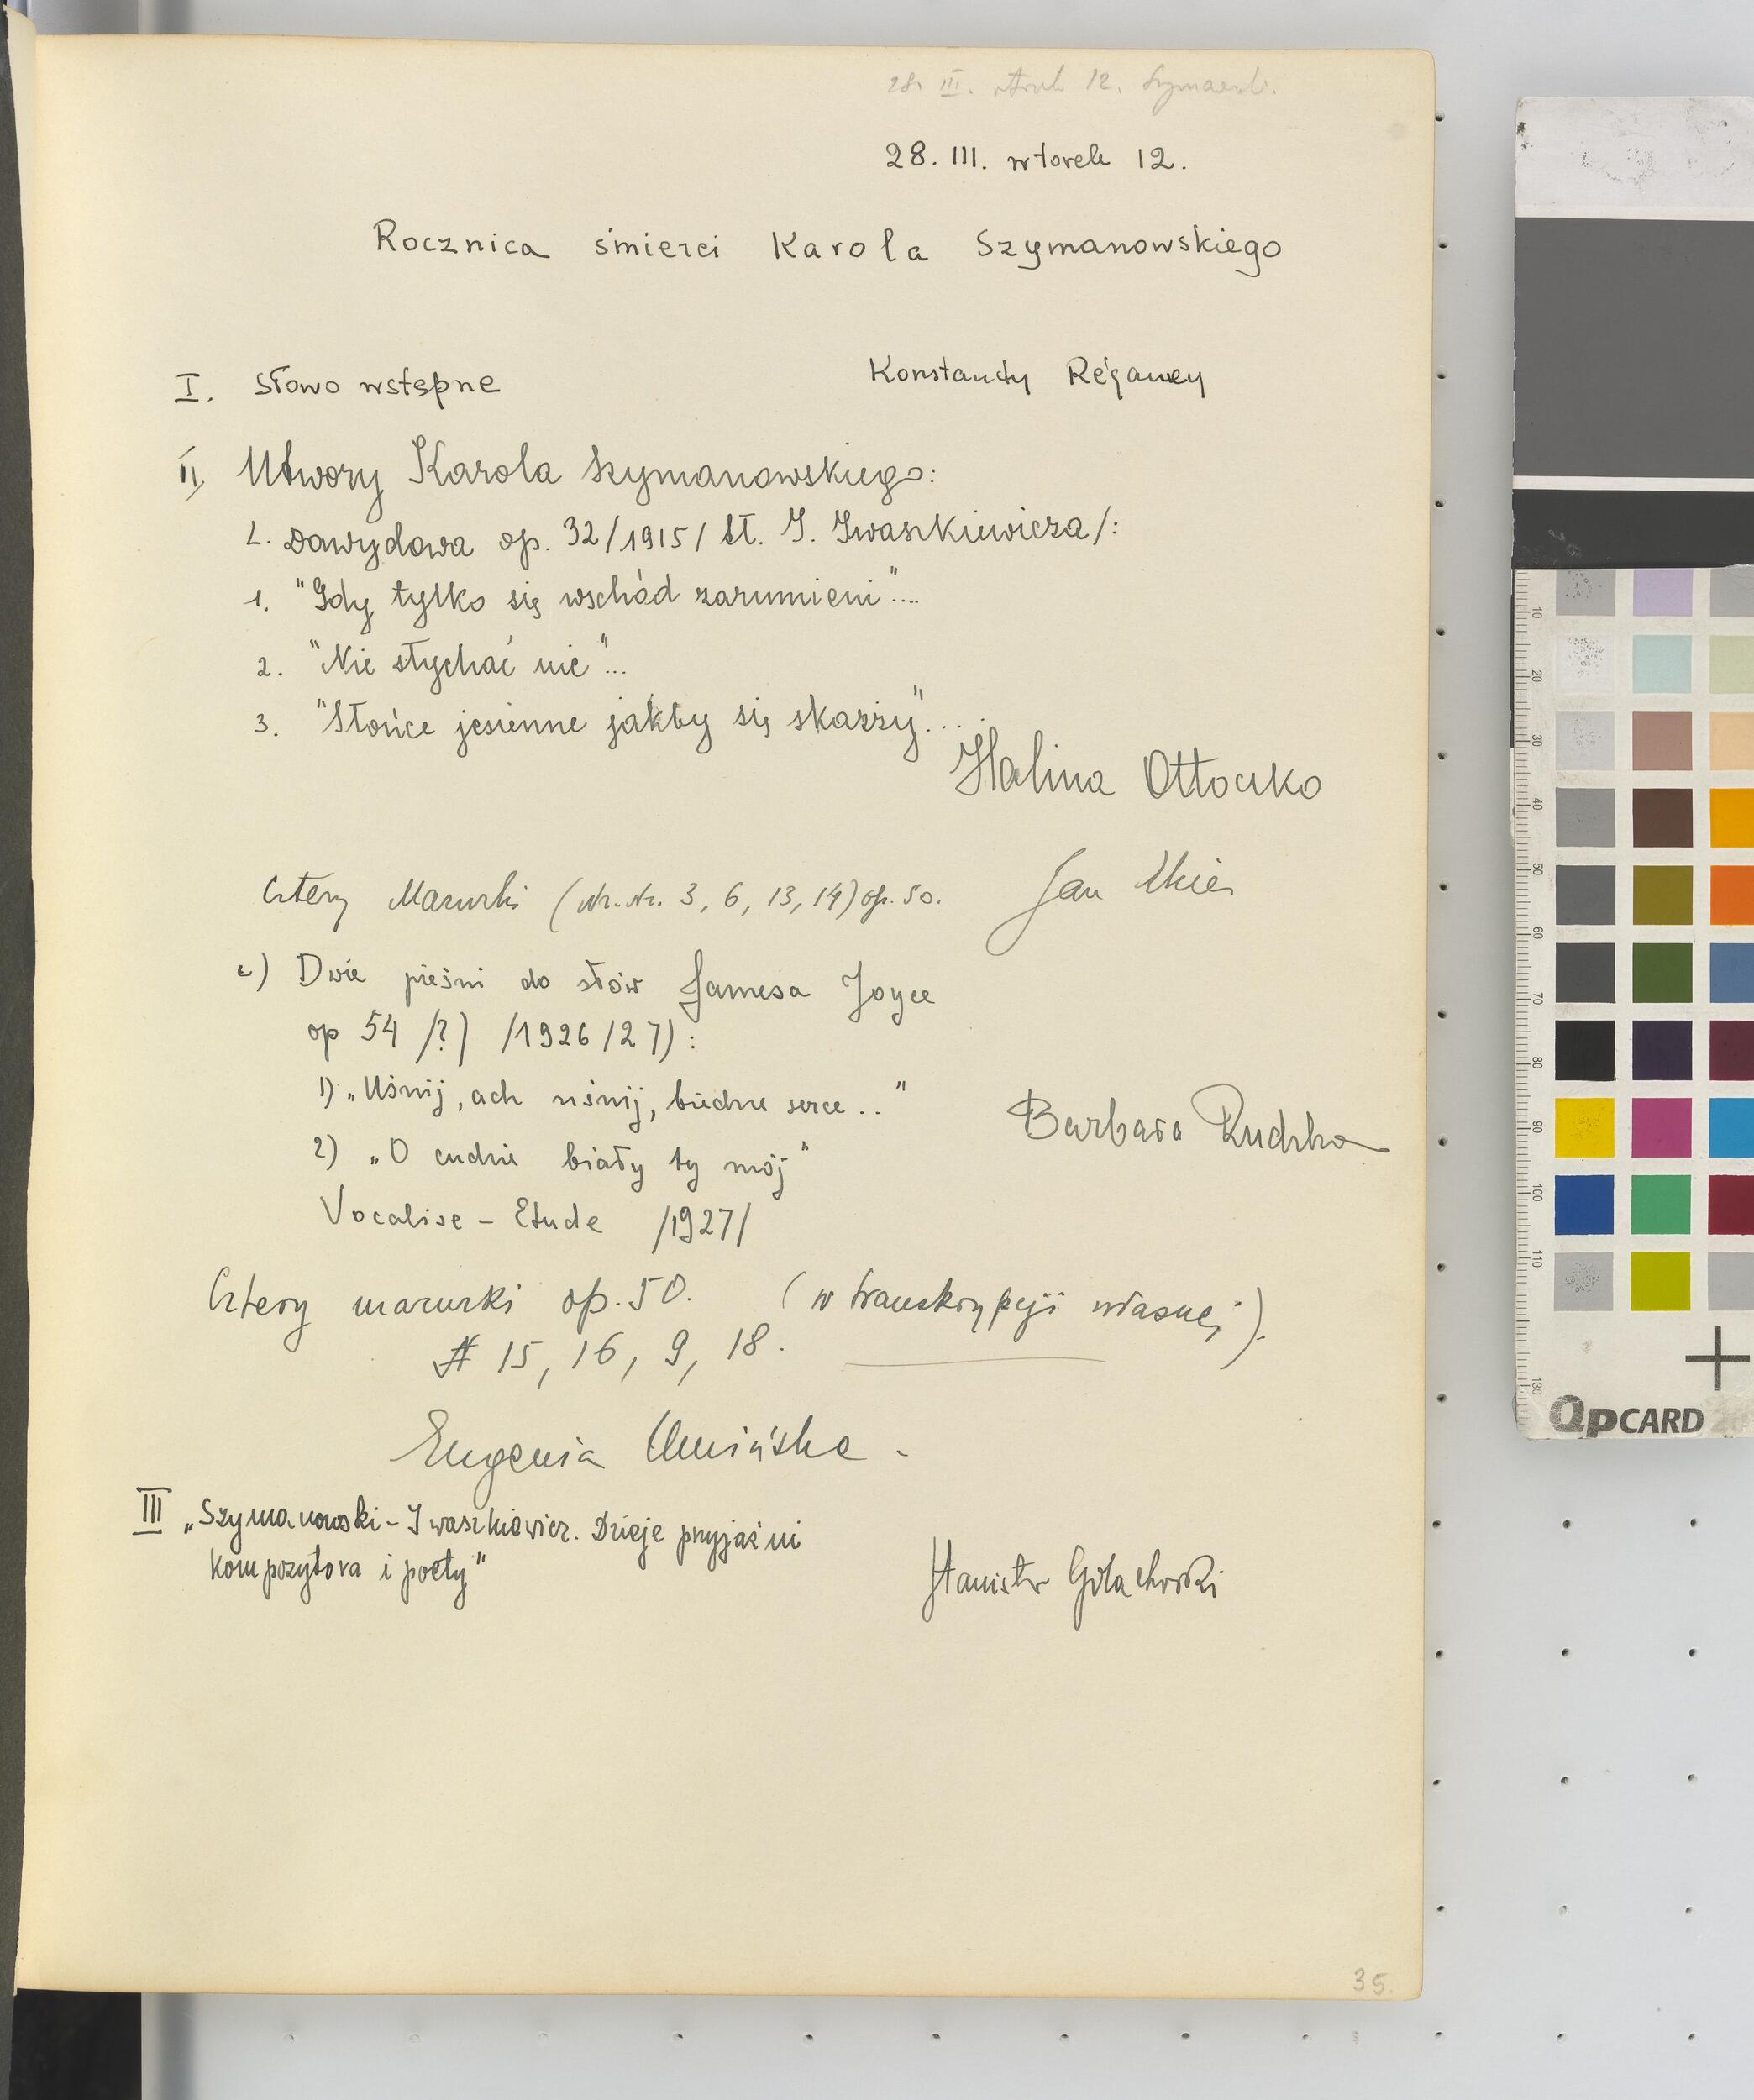 28. III. wtorek 12. Szymanowski.
28. III. wtorek 12.
Rocznica śmierci Karola Szymanowskiego
I. Słowo wstępne Konstanty Régamey
II. Utwory Karola Szymanowskiego:
Dawydowa op. 32/1915/ st. J. Iwaszkiewicza/:
1. "Gdy tylko się wschód zarumieni"....
2. "Nie słychać nic"...
3. "Słońce jesienne jakby się skarży"....
Halina Ottoczko
Cztery Mazurki (Nr. Nr. 3, 6, 13, 14) op. 50. Jan Ekier
c) Dwie pieśni do słów Jamesa Joyce
op 54 /?) /1926/27):
1) „Uśnij, ach uśnij, biedne serce.." Barbara Rudzka
2) „O cudnie biały ty mój"
Vocalise - Etude /1927/
Cztery mazurki op. 50. (w transkrypcji własnej).
# 15, 16, 9, 18.
Eugenia Umińska -
III „Szymanowski - Iwaszkiewicz. Dzieje przyjaźni
kompozytora i poety" Stanisław Golachowski
35.
10
20
30
40
50
60
70
80
90
100
110
130
QPCARD